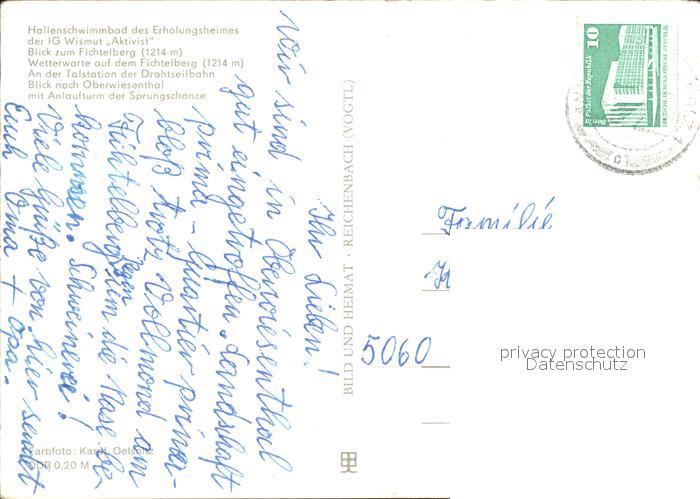 Hallenschwimmbad des Erholungsheimes
der IG Wismut „Aktivist"
Blick zum Fichtelberg (1214 m)
Wetterwarte auf dem Fichtelberg (1214 m)
An der Talstation der Drahtseilbahn
Blick nach Oberwiesenthal
mit Anlaufturm der Sprungschanze
Ihr Lieben!
Wir sind in Oberwiesenthal
gut eingetroffen. Landschaft
prima – Quartier prima –
bloß trotz Vollmond am
Fichtelberg kein die Nase be-
kommen. Schweinerei!
Viele Grüße von hier sendet
Euch Oma + Opa.
BILD UND HEIMAT · REICHENBACH (VOGTL)
10
Palast der Republik
Berlin
DEUTSCHE DEMOKRATISCHE REPUBLIK
Familie
5060
privacy protection
Datenschutz
Farbfoto: Karl
DDR 0,20 M